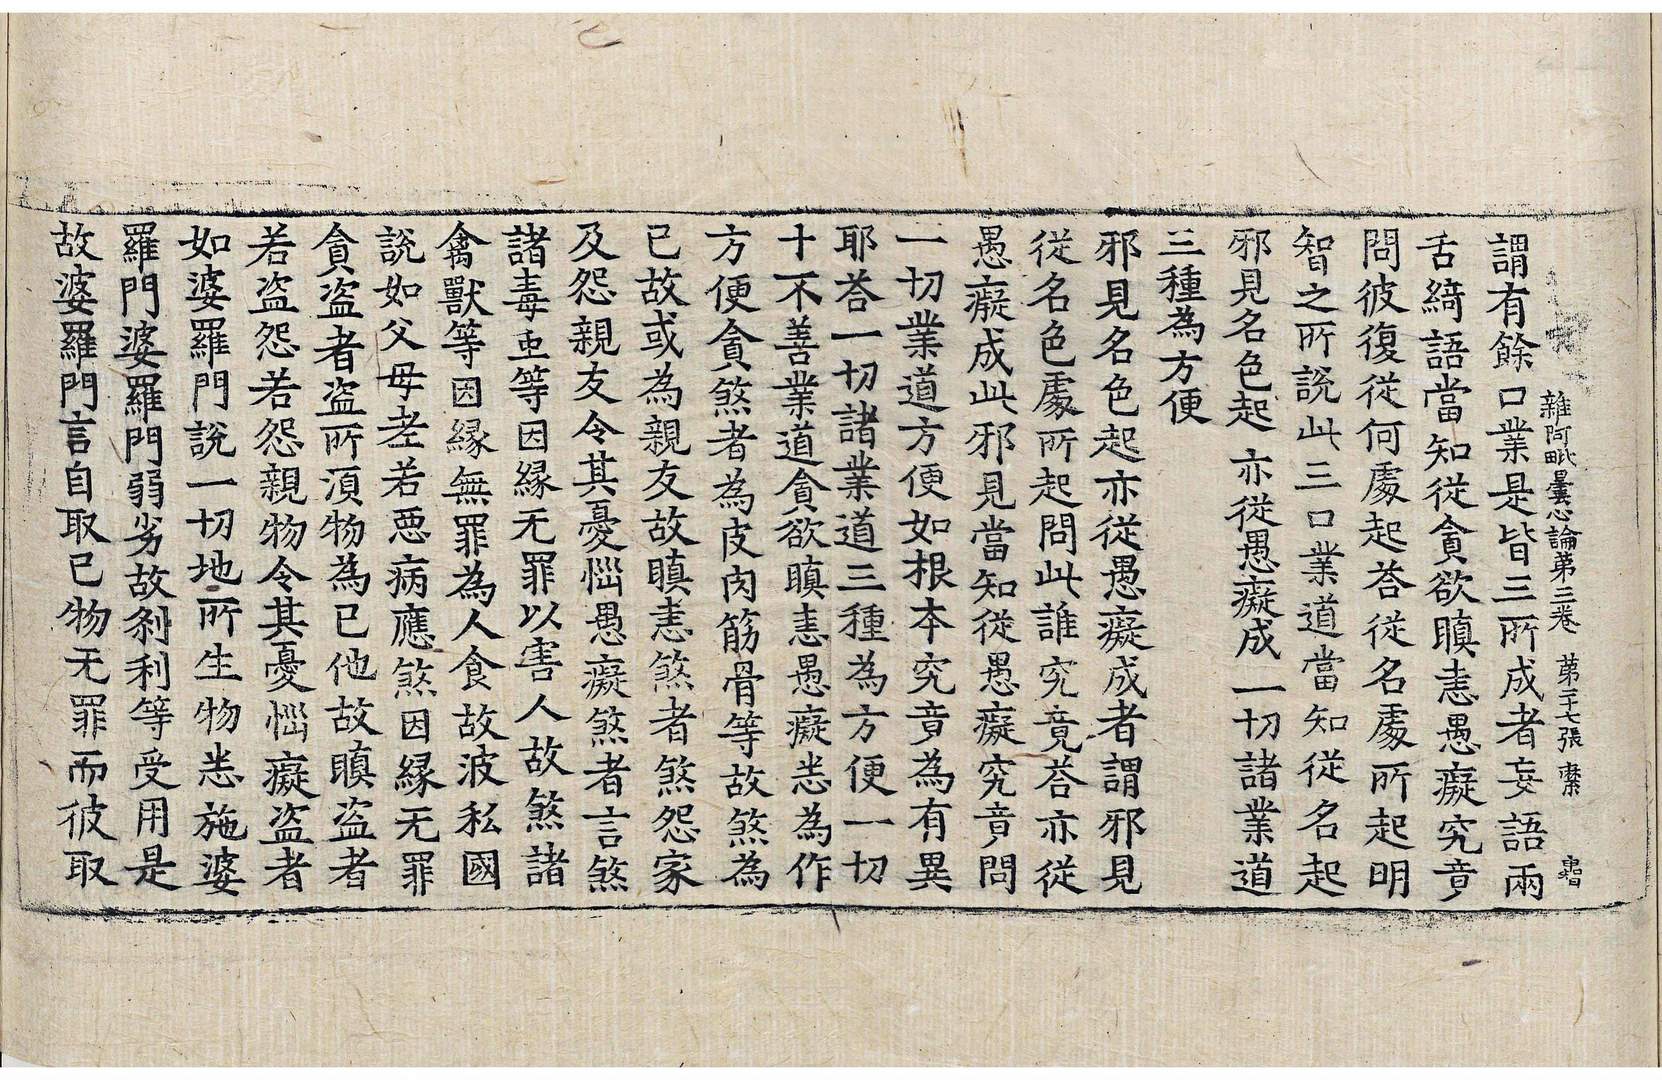 雜阿毗曇心論第三卷　第二十七張　縶
謂有餘口業是皆三所成者妄語兩
舌綺語當知從貪欲瞋恚愚癡究竟
問彼復從何處起荅從名處所起明
智之所說此三口業道當知從名起
邪見名色起　亦從愚癡成　一切諸業道
三種為方便
邪見名色起亦從愚癡成者謂邪見
從名色處所起問此誰究竟荅亦從
愚癡成此邪見當知從愚癡究竟問
一切業道方便如根本究竟為有異
耶荅一切諸業道三種為方便一切
十不善業道貪欲瞋恚愚癡悉為作
方便貪煞者為皮肉筋骨等故煞為
已故或為親友故瞋恚煞者煞怨家
及怨親友令其憂惱愚癡煞者言煞
諸毒䖝等因緣无罪以害人故煞諸
禽獸等因緣無罪為人食故波私國
說如父母老若惡病應煞因緣无罪
貪盜者盜所湏物為已他故瞋盜者
若盜怨若怨親物令其憂惱癡盜者
如婆羅門說一切地所生物悉施婆
羅門婆羅門弱劣故剎利等受用是
故婆羅門言自取已物无罪而彼取